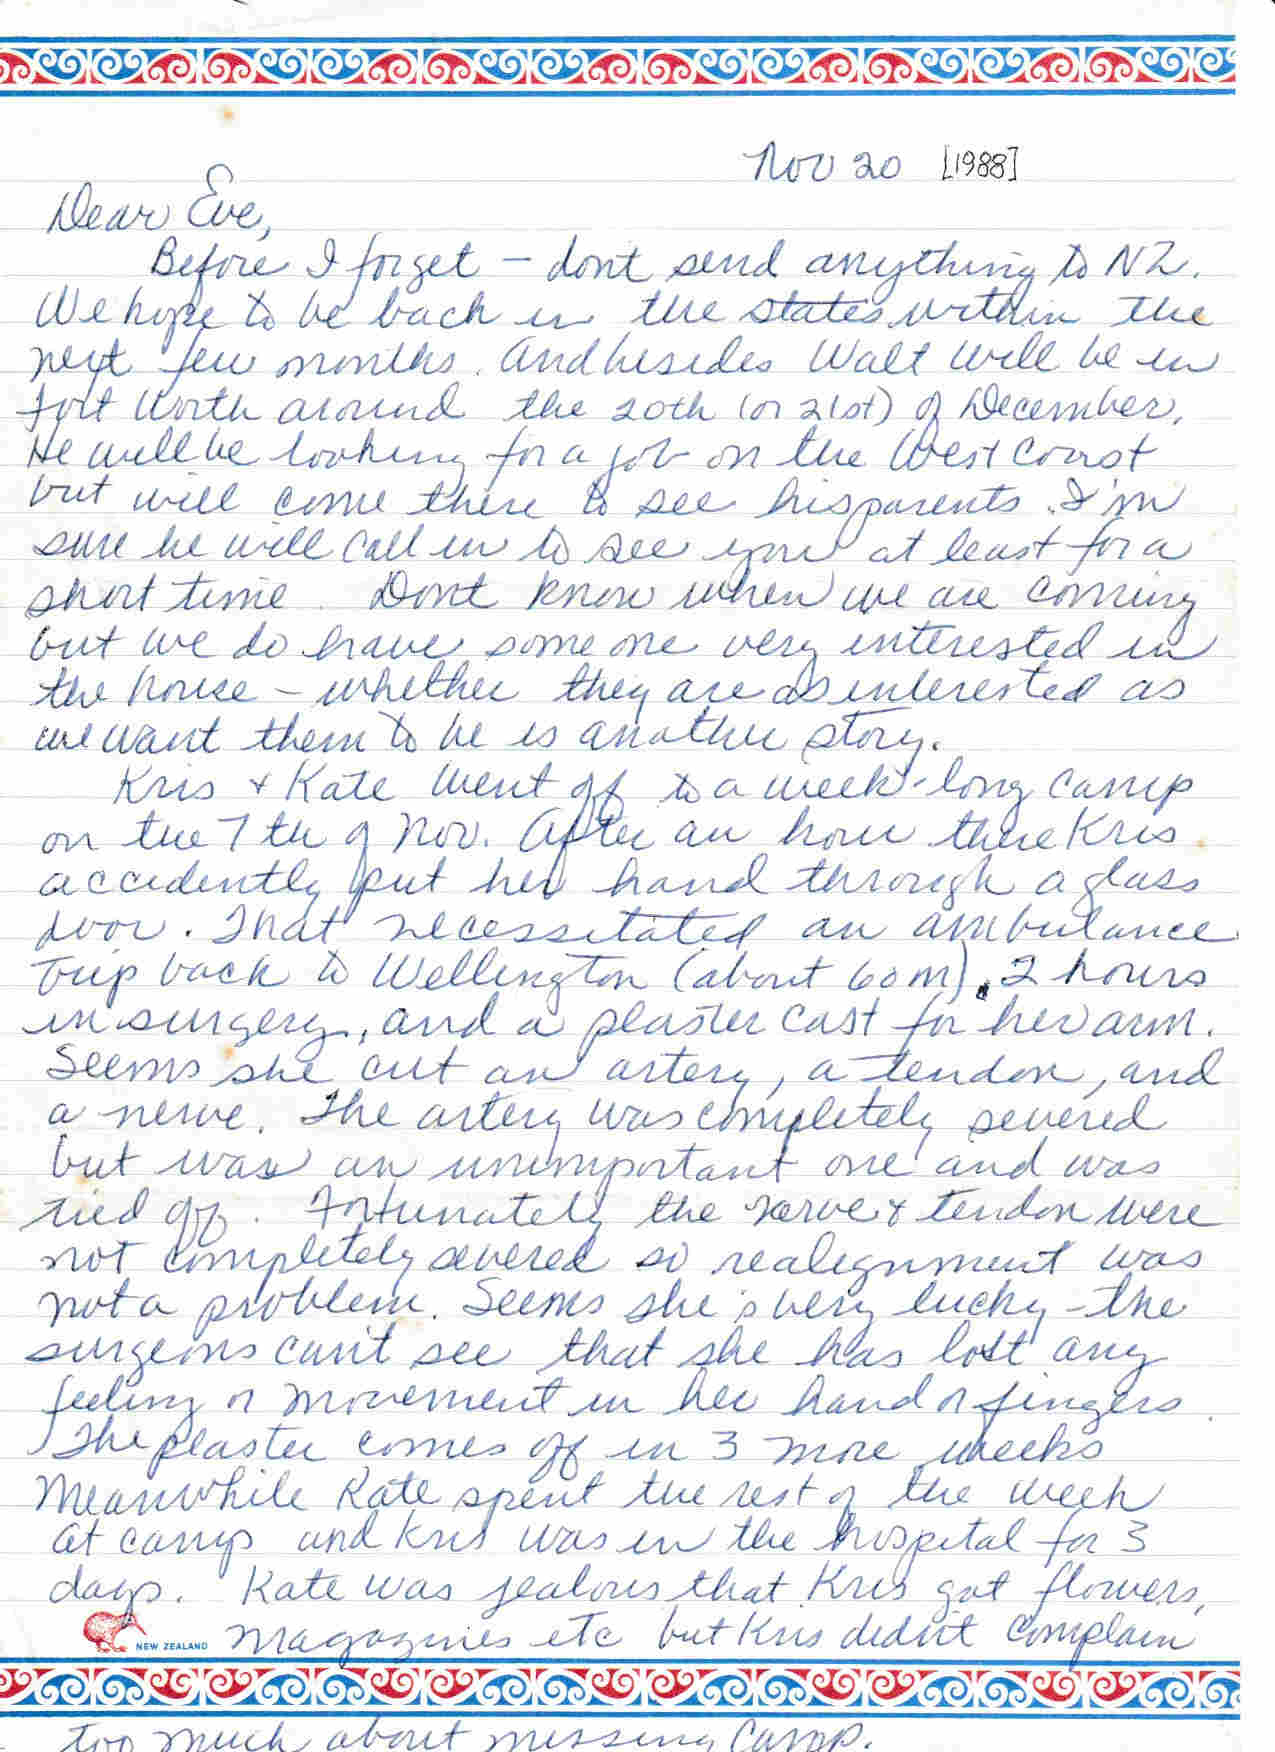 Nov 20 [1988]
Dear Eve,
Before I forget – dont send anything to NZ.
We hope to be back in the states within the
next few months. And besides Walt will be in
Fort Worth around the 20th (or 21st) of December.
He will be looking for a job on the West Coast
but will come there to see his parents. I'm
sure he will call in to see you at least for a
short time. Dont know when we are coming
but we do have someone very interested in
the house – whether they are as interested as
we want them to be is another story.
Kris + Kate went off to a week-long camp
on the 7th of Nov. After an hour there Kris
accidently put her hand through a glass
door. That necessitated an ambulance
trip back to Wellington (about 60m), 2 hours
in surgery, and a plaster cast for her arm.
Seems she cut an artery, a tendon, and
a nerve. The artery was completely severed
but was an unimportant one and was
tied off. Fortunately the nerve & tendon were
not completely severed so realignment was
not a problem. Seems she's very lucky – the
surgeons can't see that she has lost any
feeling or movement in her hand or fingers.
The plaster comes off in 3 more weeks
Meanwhile Kate spent the rest of the week
at camp and Kris was in the hospital for 3
days. Kate was jealous that Kris got flowers,
NEW ZEALAND magazines etc but Kris didn't complain
too much about missing camp.